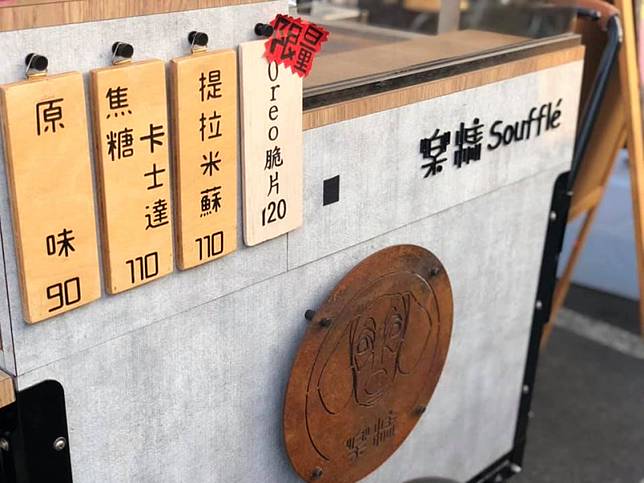 原味
90
焦糖
卡士達
110
提拉米蘇
110
限量
Oreo脆片
120
樂情 Soufflé
樂情